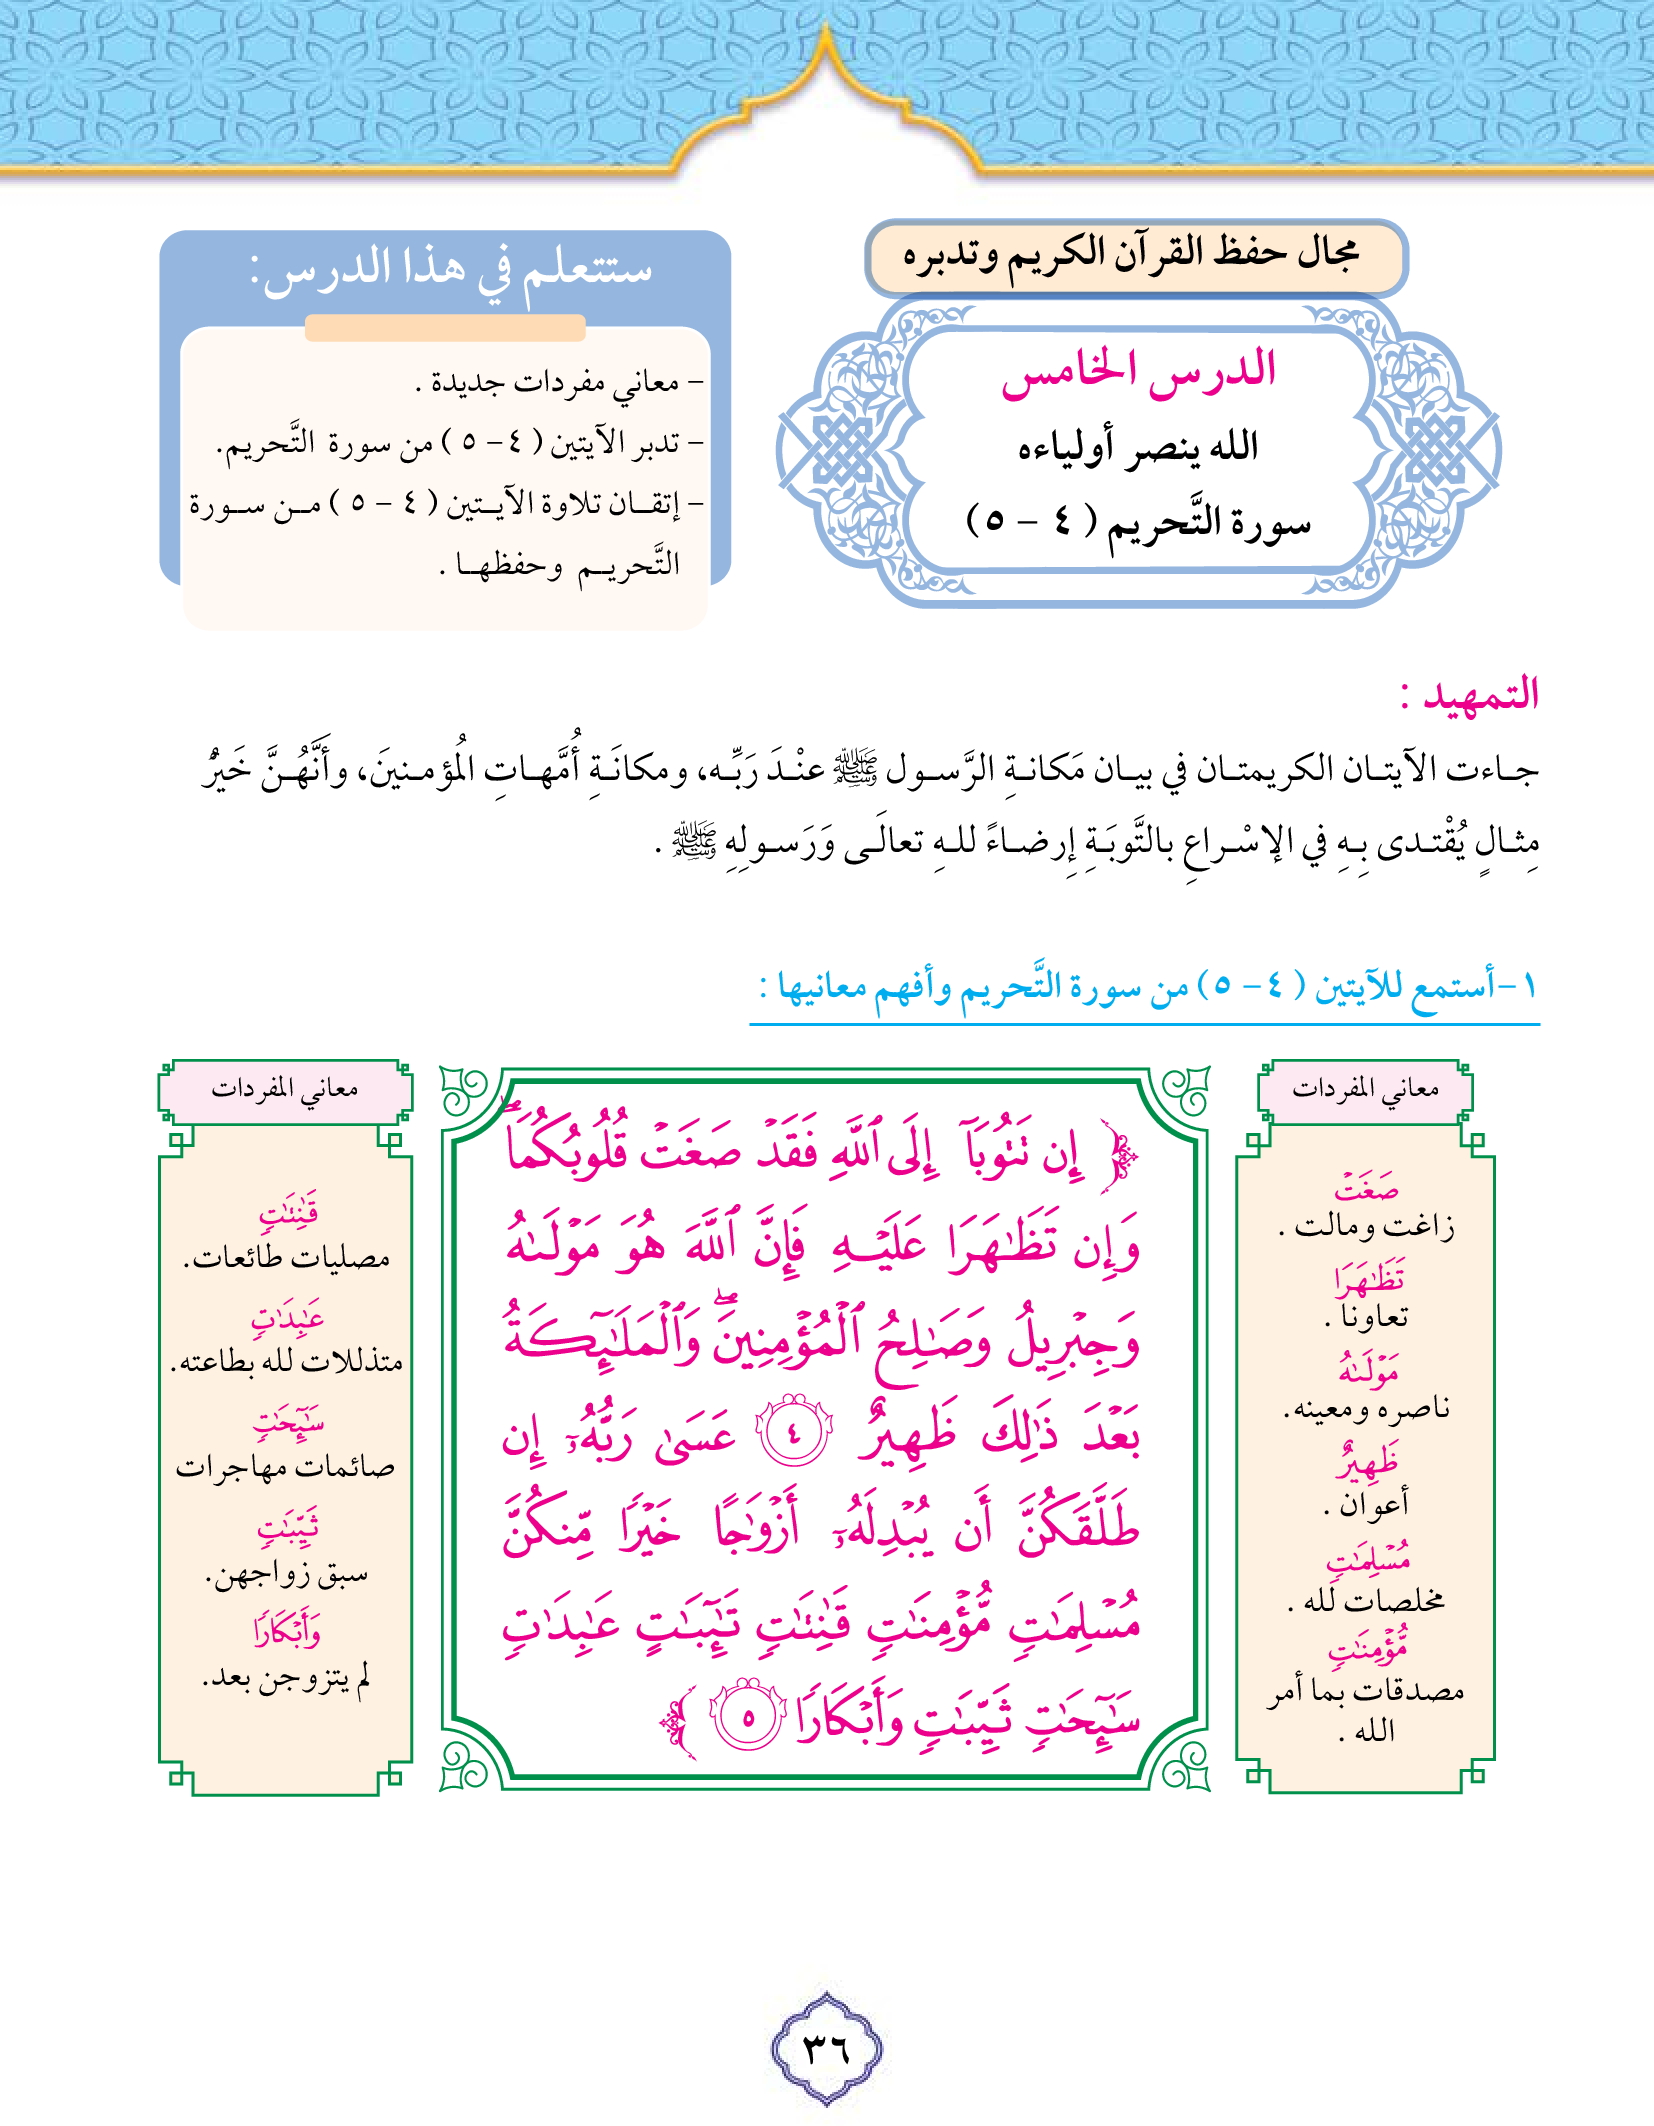 مجال حفظ القرآن الكريم وتدبره
الدرس الخامس
الله ينصر أولياءه
سورة التَّحريم ( ٤ - ٥ )
ستتعلم في هذا الدرس:
- معاني مفردات جديدة .
- تدبر الآيتين ( ٤ - ٥ ) من سورة التَّحريم.
- إتقان تلاوة الآيتين ( ٤ - ٥ ) من سورة
التَّحريم وحفظها .
التمهيد :
جاءت الآيتان الكريمتان في بيان مَكانةِ الرَّسول ﷺ عنْدَ رَبِّه، ومكانَةِ أُمَّهاتِ المُؤمنينَ، وأَنَّهُنَّ خَيرُ
مِثالٍ يُقْتدى بِهِ في الإسْراعِ بالتَّوبَةِ إرِضاءً للهِ تعالَى وَرَسولِهِ ﷺ .
١- أستمع للآيتين ( ٤ - ٥ ) من سورة التَّحريم وأفهم معانيها :
معاني المفردات
صَغَتْ
زاغت ومالت .
تَظَٰهَرَا
تعاونا .
مَوْلَىٰهُ
ناصره ومعينه.
ظَهِيرٌ
أعوان .
مُسْلِمَٰتٍ
مخلصات لله .
مُّؤْمِنَٰتٍ
مصدقات بما أمر
الله .
﴿ إِن تَتُوبَآ إِلَى ٱللَّهِ فَقَدْ صَغَتْ قُلُوبُكُمَا ۖ
وَإِن تَظَٰهَرَا عَلَيْهِ فَإِنَّ ٱللَّهَ هُوَ مَوْلَىٰهُ
وَجِبْرِيلُ وَصَٰلِحُ ٱلْمُؤْمِنِينَ ۖ وَٱلْمَلَٰٓئِكَةُ
بَعْدَ ذَٰلِكَ ظَهِيرٌ ٤ عَسَىٰ رَبُّهُۥٓ إِن
طَلَّقَكُنَّ أَن يُبْدِلَهُۥٓ أَزْوَٰجًا خَيْرًا مِّنكُنَّ
مُسْلِمَٰتٍ مُّؤْمِنَٰتٍ قَٰنِتَٰتٍ تَٰٓئِبَٰتٍ عَٰبِدَٰتٍ
سَٰٓئِحَٰتٍ ثَيِّبَٰتٍ وَأَبْكَارًا ٥ ﴾
معاني المفردات
قَٰنِتَٰتٍ
مصليات طائعات.
عَٰبِدَٰتٍ
متذللات لله بطاعته.
سَٰٓئِحَٰتٍ
صائمات مهاجرات
ثَيِّبَٰتٍ
سبق زواجهن.
وَأَبْكَارًا
لم يتزوجن بعد.
٣٦